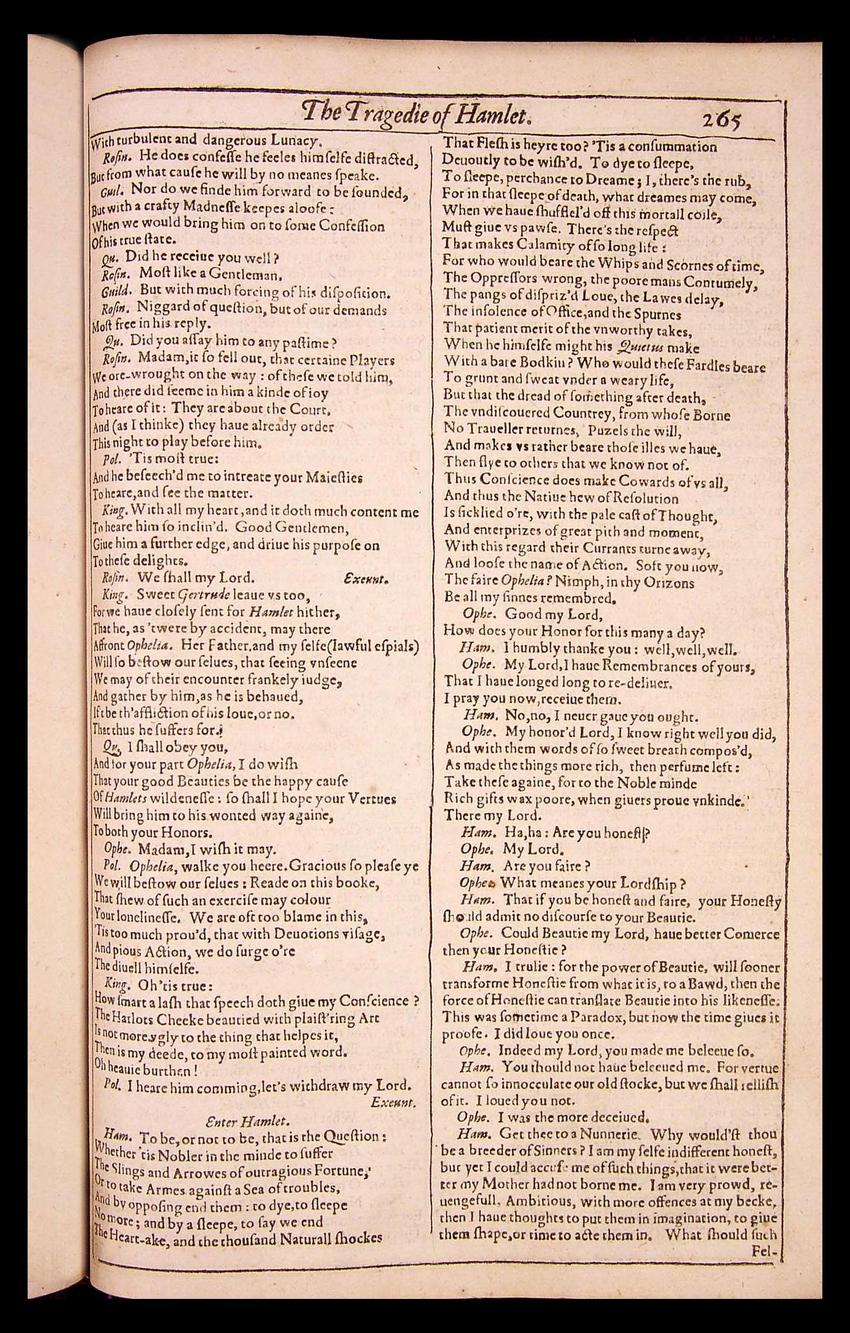 The Tragedie of Hamlet.
265
With turbulent and dangerous Lunacy.
Rosin. He does confesse he feeles himselfe distracted,
But from what cause he will by no meanes speake.
Guil. Nor do we finde him forward to be sounded,
But with a crafty Madnesse keepes aloofe:
When we would bring him on to some Confession
Of his true state.
Qu. Did he receiue you well?
Rosin. Most like a Gentleman.
Guild. But with much forcing of his disposition.
Rosin. Niggard of question, but of our demands
Most free in his reply.
Qu. Did you assay him to any pastime?
Rosin. Madam, it so fell out, that certaine Players
We ore-wrought on the way: of these we told him,
And there did seeme in him a kinde of ioy
To heare of it: They are about the Court,
And (as I thinke) they haue already order
This night to play before him.
Pol. 'Tis most true:
And he beseech'd me to intreate your Maiesties
To heare, and see the matter.
King. With all my heart, and it doth much content me
To heare him so inclin'd. Good Gentlemen,
Giue him a further edge, and driue his purpose on
To these delights.
Rosin. We shall my Lord. Exeunt.
King. Sweet Gertrude leaue vs too,
For we haue closely sent for Hamlet hither,
That he, as 'twere by accident, may there
Affront Ophelia. Her Father, and my selfe (lawful espials)
Will so bestow our selues, that seeing vnseene
We may of their encounter frankely iudge,
And gather by him, as he is behaued,
If't be th'affliction of his loue, or no.
That thus he suffers for.
Qu. I shall obey you,
And for your part Ophelia, I do wish
That your good Beauties be the happy cause
Of Hamlets wildenesse: so shall I hope your Vertues
Will bring him to his wonted way againe,
To both your Honors.
Ophe. Madam, I wish it may.
Pol. Ophelia, walke you heere. Gracious so please ye
We will bestow our selues: Reade on this booke,
That shew of such an exercise may colour
Your lonelinesse. We are oft too blame in this,
'Tis too much prou'd, that with Deuotions visage,
And pious Action, we do surge o're
The diuell himselfe.
King. Oh 'tis true:
How smart a lash that speech doth giue my Conscience?
The Harlots Cheeke beautied with plaist'ring Art
Is not more vgly to the thing that helpes it,
Then is my deede, to my most painted word.
Oh heauie burthen!
Pol. I heare him comming, let's withdraw my Lord.
Exeunt.
Enter Hamlet.
Ham. To be, or not to be, that is the Question:
Whether 'tis Nobler in the minde to suffer
The Slings and Arrowes of outragious Fortune,
Or to take Armes against a Sea of troubles,
And by opposing end them: to dye, to sleepe
No more; and by a sleepe, to say we end
The Heart-ake, and the thousand Naturall shockes
That Flesh is heyre too? 'Tis a consummation
Deuoutly to be wish'd. To dye to sleepe,
To sleepe, perchance to Dreame; I, there's the rub,
For in that sleepe of death, what dreames may come,
When we haue shuffel'd off this mortall coile,
Must giue vs pawse. There's the respect
That makes Calamity of so long life:
For who would beare the Whips and Scornes of time,
The Oppressors wrong, the poore mans Contumely,
The pangs of dispriz'd Loue, the Lawes delay,
The insolence of Office, and the Spurnes
That patient merit of the vnworthy takes,
When he himselfe might his Quietus make
With a bare Bodkin? Who would these Fardles beare
To grunt and sweat vnder a weary life,
But that the dread of something after death,
The vndiscouered Countrey, from whose Borne
No Traueller returnes, Puzels the will,
And makes vs rather beare those illes we haue,
Then flye to others that we know not of.
Thus Conscience does make Cowards of vs all,
And thus the Natiue hew of Resolution
Is sicklied o're, with the pale cast of Thought,
And enterprizes of great pith and moment,
With this regard their Currants turne away,
And loose the name of Action. Soft you now,
The faire Ophelia? Nimph, in thy Orizons
Be all my sinnes remembred.
Ophe. Good my Lord,
How does your Honor for this many a day?
Ham. I humbly thanke you: well, well, well.
Ophe. My Lord, I haue Remembrances of yours,
That I haue longed long to re-deliuer.
I pray you now, receiue them.
Ham. No, no, I neuer gaue you ought.
Ophe. My honor'd Lord, I know right well you did,
And with them words of so sweet breath compos'd,
As made the things more rich, then perfume left:
Take these againe, for to the Noble minde
Rich gifts wax poore, when giuers proue vnkinde.
There my Lord.
Ham. Ha, ha: Are you honest?
Ophe. My Lord.
Ham. Are you faire?
Ophe. What meanes your Lordship?
Ham. That if you be honest and faire, your Honesty
should admit no discourse to your Beautie.
Ophe. Could Beautie my Lord, haue better Comerce
then your Honestie?
Ham. I trulie: for the power of Beautie, will sooner
transforme Honestie from what it is, to a Bawd, then the
force of Honestie can translate Beautie into his likenesse.
This was sometime a Paradox, but now the time giues it
proofe. I did loue you once.
Ophe. Indeed my Lord, you made me beleeue so.
Ham. You should not haue beleeued me. For vertue
cannot so innocculate our old stocke, but we shall rellish
of it. I loued you not.
Ophe. I was the more deceiued.
Ham. Get thee to a Nunnerie. Why would'st thou
be a breeder of Sinners? I am my selfe indifferent honest,
but yet I could accuse me of such things, that it were bet-
ter my Mother had not borne me. I am very prowd, re-
uengefull, Ambitious, with more offences at my becke,
then I haue thoughts to put them in imagination, to giue
them shape, or time to acte them in. What should such
Fel-